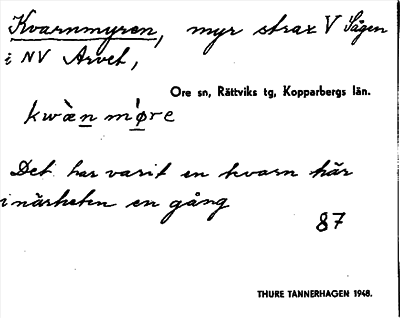 Kvarnmyren, myr strax V Sågen
i NV Arvet,
Ore sn, Rättviks tg, Kopparbergs län.
kwὰn møre
Det har varit en kvarn här
i närheten en gång
87
THURE TANNERHAGEN 1948.